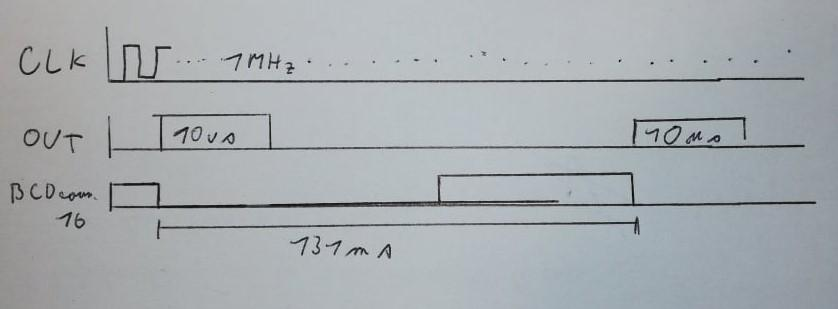 CLK 1MHz
OUT 10us 10us
BCDcoun.
16
131ms